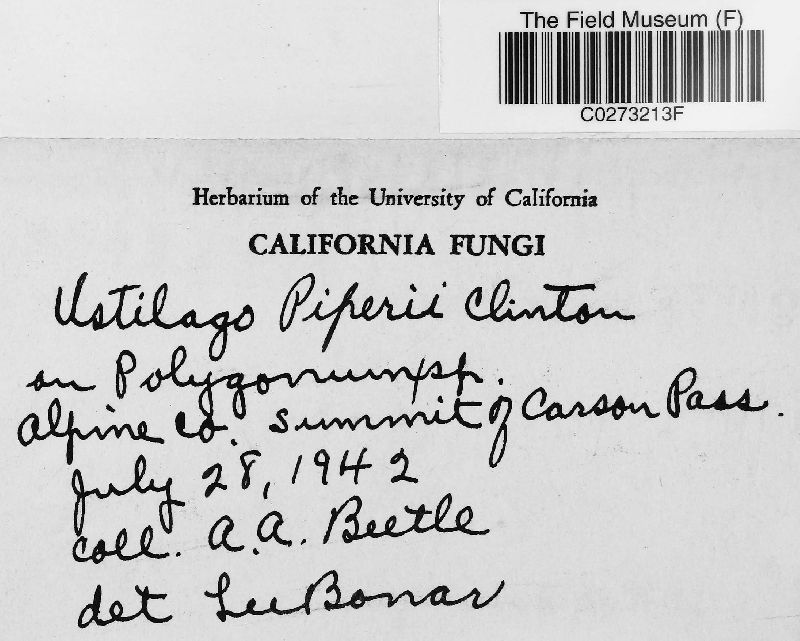 The Field Museum (F)
C0273213F
Herbarium of the University of California
CALIFORNIA FUNGI
Ustilago Piperii Clinton
on Polygonum sp.
Alpine Co. Summit of Carson Pass.
July 28, 1942
coll. A.A. Beetle
det Lee Bonar